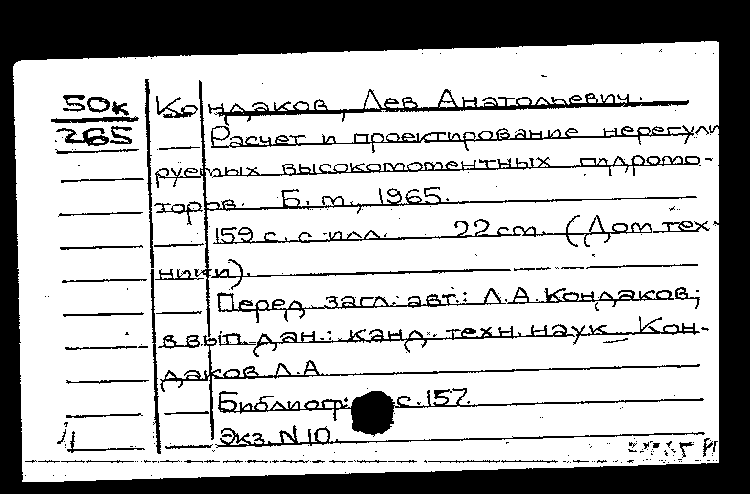 50к Кондаков, Лев Анатольевич.
265 Расчет и проектирование нерегули
руемых высокомоментных гидромо-
торов. Б. м., 1965.
159 с. с илл. 22 см. (Дом тех-
ники).
Перед загл. авт.: Л.А. Кондаков;
в вып. дан.: канд. техн. наук Кон-
даков Л.А.
Библиогр: с. 157.
Экз. N 10.